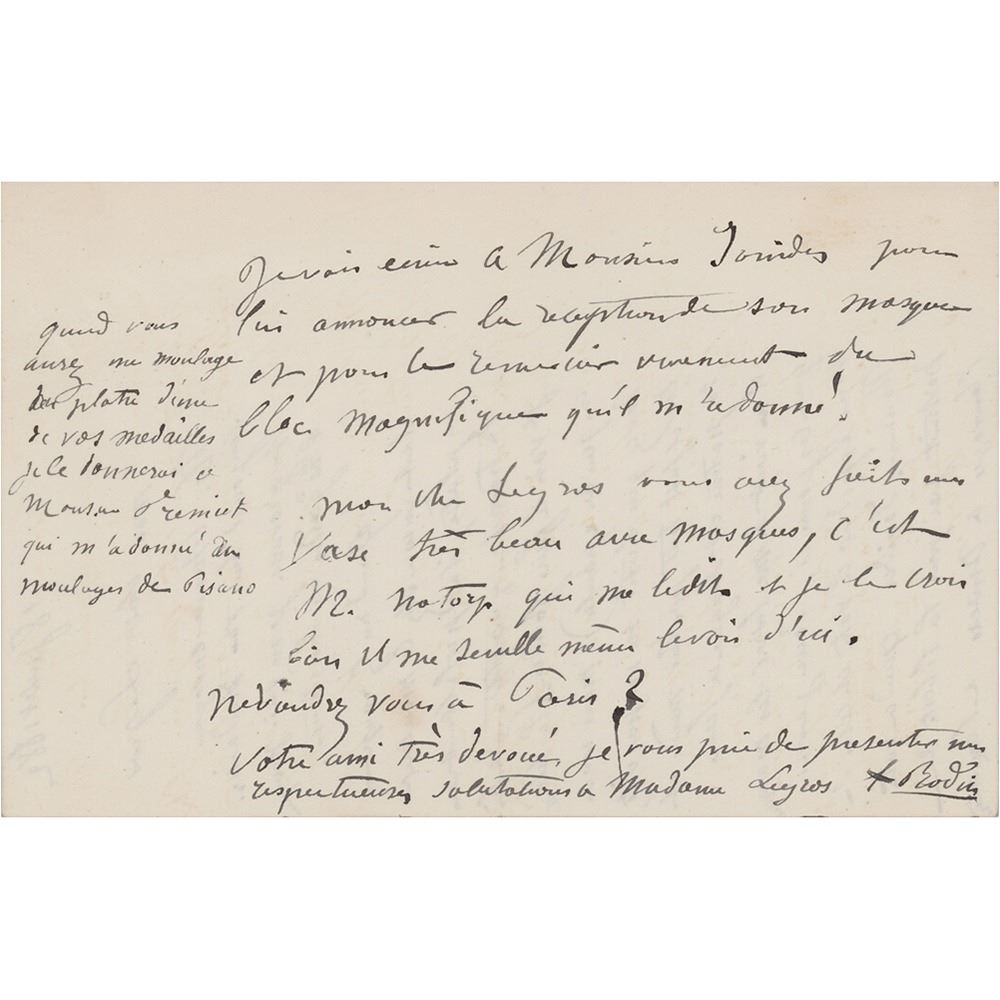 Je vais ecrire a Monsieur Ionides pour
lui annoncer la reception de son masque
et pour le remercier vivement du
bloc magnifique qu'il m'a donné.
mon cher Legros vous avez fait un
Vase très beau avec masques, c'est
M. Natorp qui me le dit et je le crois
bien il me semble même le voir d'ici.
ne viendrez vous à Paris ?
votre ami très devoué, je vous prie de presenter mes
respectueuses salutations a Madame Legros A Rodin
quand vous
aurez un moulage
platre d'une
de vos medailles
je le donnerai a
Monsieur
qui m'a donné
moulages de Pisano